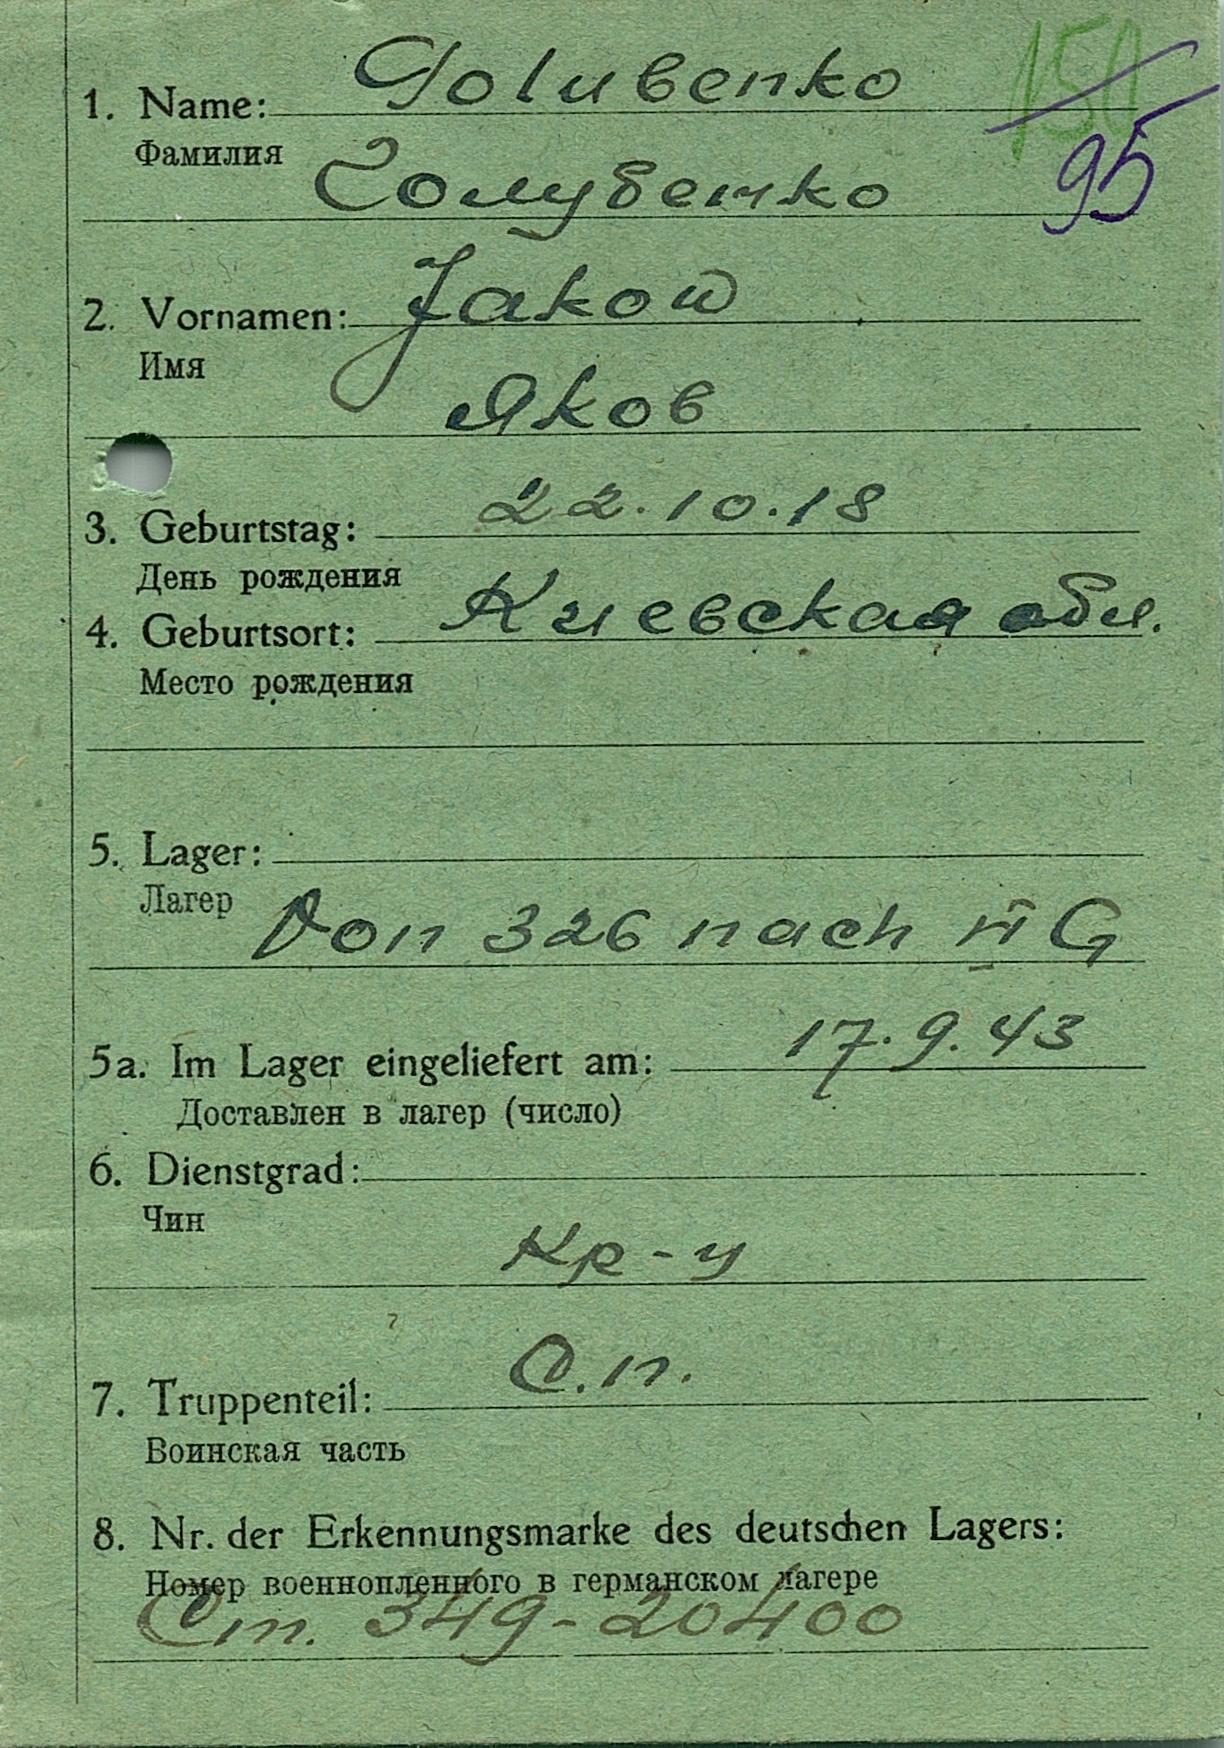 150
1. Name: Golubenko
95
Фамилия
Голубенко
2. Vornamen: Jakow
Имя
Яков
3. Geburtstag: 22.10.18
День рождения
4. Geburtsort: Киевская обл.
Место рождения
5. Lager:
Лагер
Von 326 nach
17.9.43
5a. Im Lager eingeliefert am:
Доставлен в лагер (число)
6. Dienstgrad:
Чин
Кр-ц
7. Truppenteil: С.п.
Воинская часть
8. Nr. der Erkennungsmarke des deutschen Lagers:
Номер военнопленного в германском лагере
Ст. 349-20400